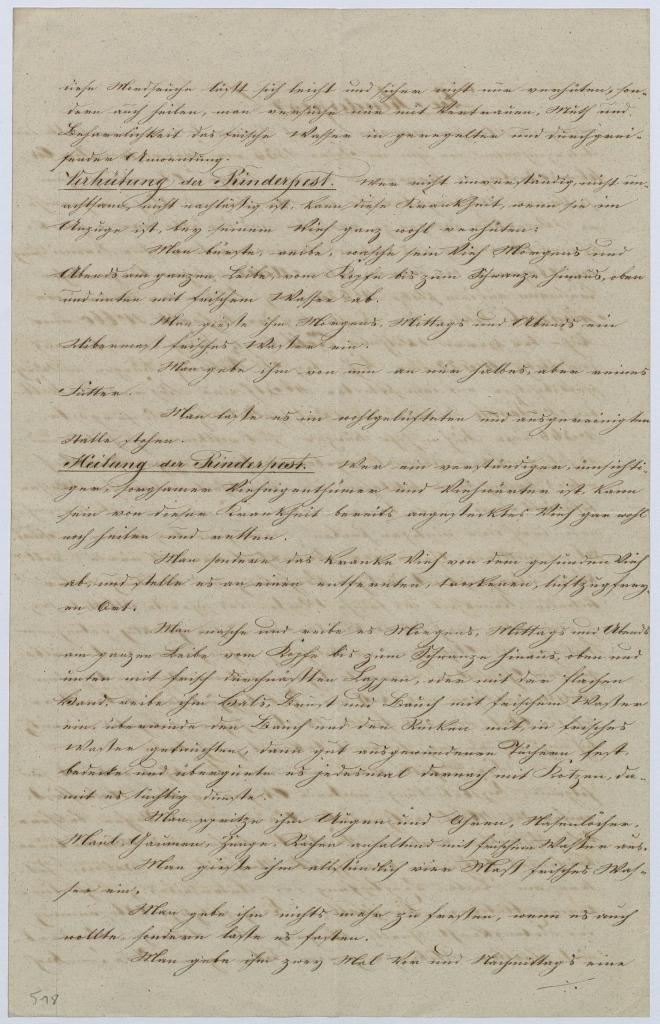 diese Viehseuche läßt sich leicht und sicher nicht nur verhüten, son-
dern auch heilen, man versuche nur mit Vertrauen, Muth und
Beharrlichkeit das frische Wasser in geregelter und durchgrei-
fender Anwendung.
Verhütung der Rinderpest. Wer nicht unverständig, nicht un-
achtsam, nicht nachlässig ist, kann diese Krankheit, wenn sie im
Anzuge ist, bey seinem Vieh ganz wohl verhüten:
Man bürste, reibe, wasche sein Vieh Morgens und
Abends am ganzen Leibe, vom Kopfe bis zum Schwanze hinaus, oben
und unten mit frischem Wasser ab.
Man gieße ihm Morgens, Mittags und Abends ein
frisches Wasser ein.
Man gebe ihm von nun an nur halbes, aber reines
Futter.
Man lasse es im wohlgelüfteten und ausgereinigten
Stalle stehen.
Heilung der Rinderpest. Wer ein verständiger, umsichti-
ger, sorgsamer Vieheigenthümer und Viehwärter ist, kann
sein von dieser Krankheit bereits angestecktes Vieh gar wohl
noch heilen und retten.
Man sondere das kranke Vieh von dem gesunden Vieh
ab, und stelle es an einen entfernten, trockenen, luftzugfrey-
en Ort.
Man wasche und reibe es Morgens, Mittags und Abends
am ganzen Leibe vom Kopfe bis zum Schwanze hinaus, oben und
unten mit frisch durchnäßten Lappen, oder mit der flachen
Hand, reibe ihm Hals, Brust und Bauch mit frischem Wasser
ein, überwinde den Bauch und den Rücken mit, in frisches
Wasser getauchten, dann gut ausgewundenen Tüchern fest,
bedecke und übergurte es jedesmal darnach mit Kotzen, da-
mit es tüchtig dünste.
Man spritze ihm Augen und Ohren, Nasenlöcher,
Maul, Gaumen, Zunge, Rachen anhaltend mit frischem Wasser aus.
Man gieße ihm allstündlich vier Maß frisches Was-
ser ein.
Man gebe ihm nichts mehr zu fressen, wenn es auch
wollte, sondern lasse es fasten.
Man gebe ihm zwey Mal Vor und Nachmittags eine
518